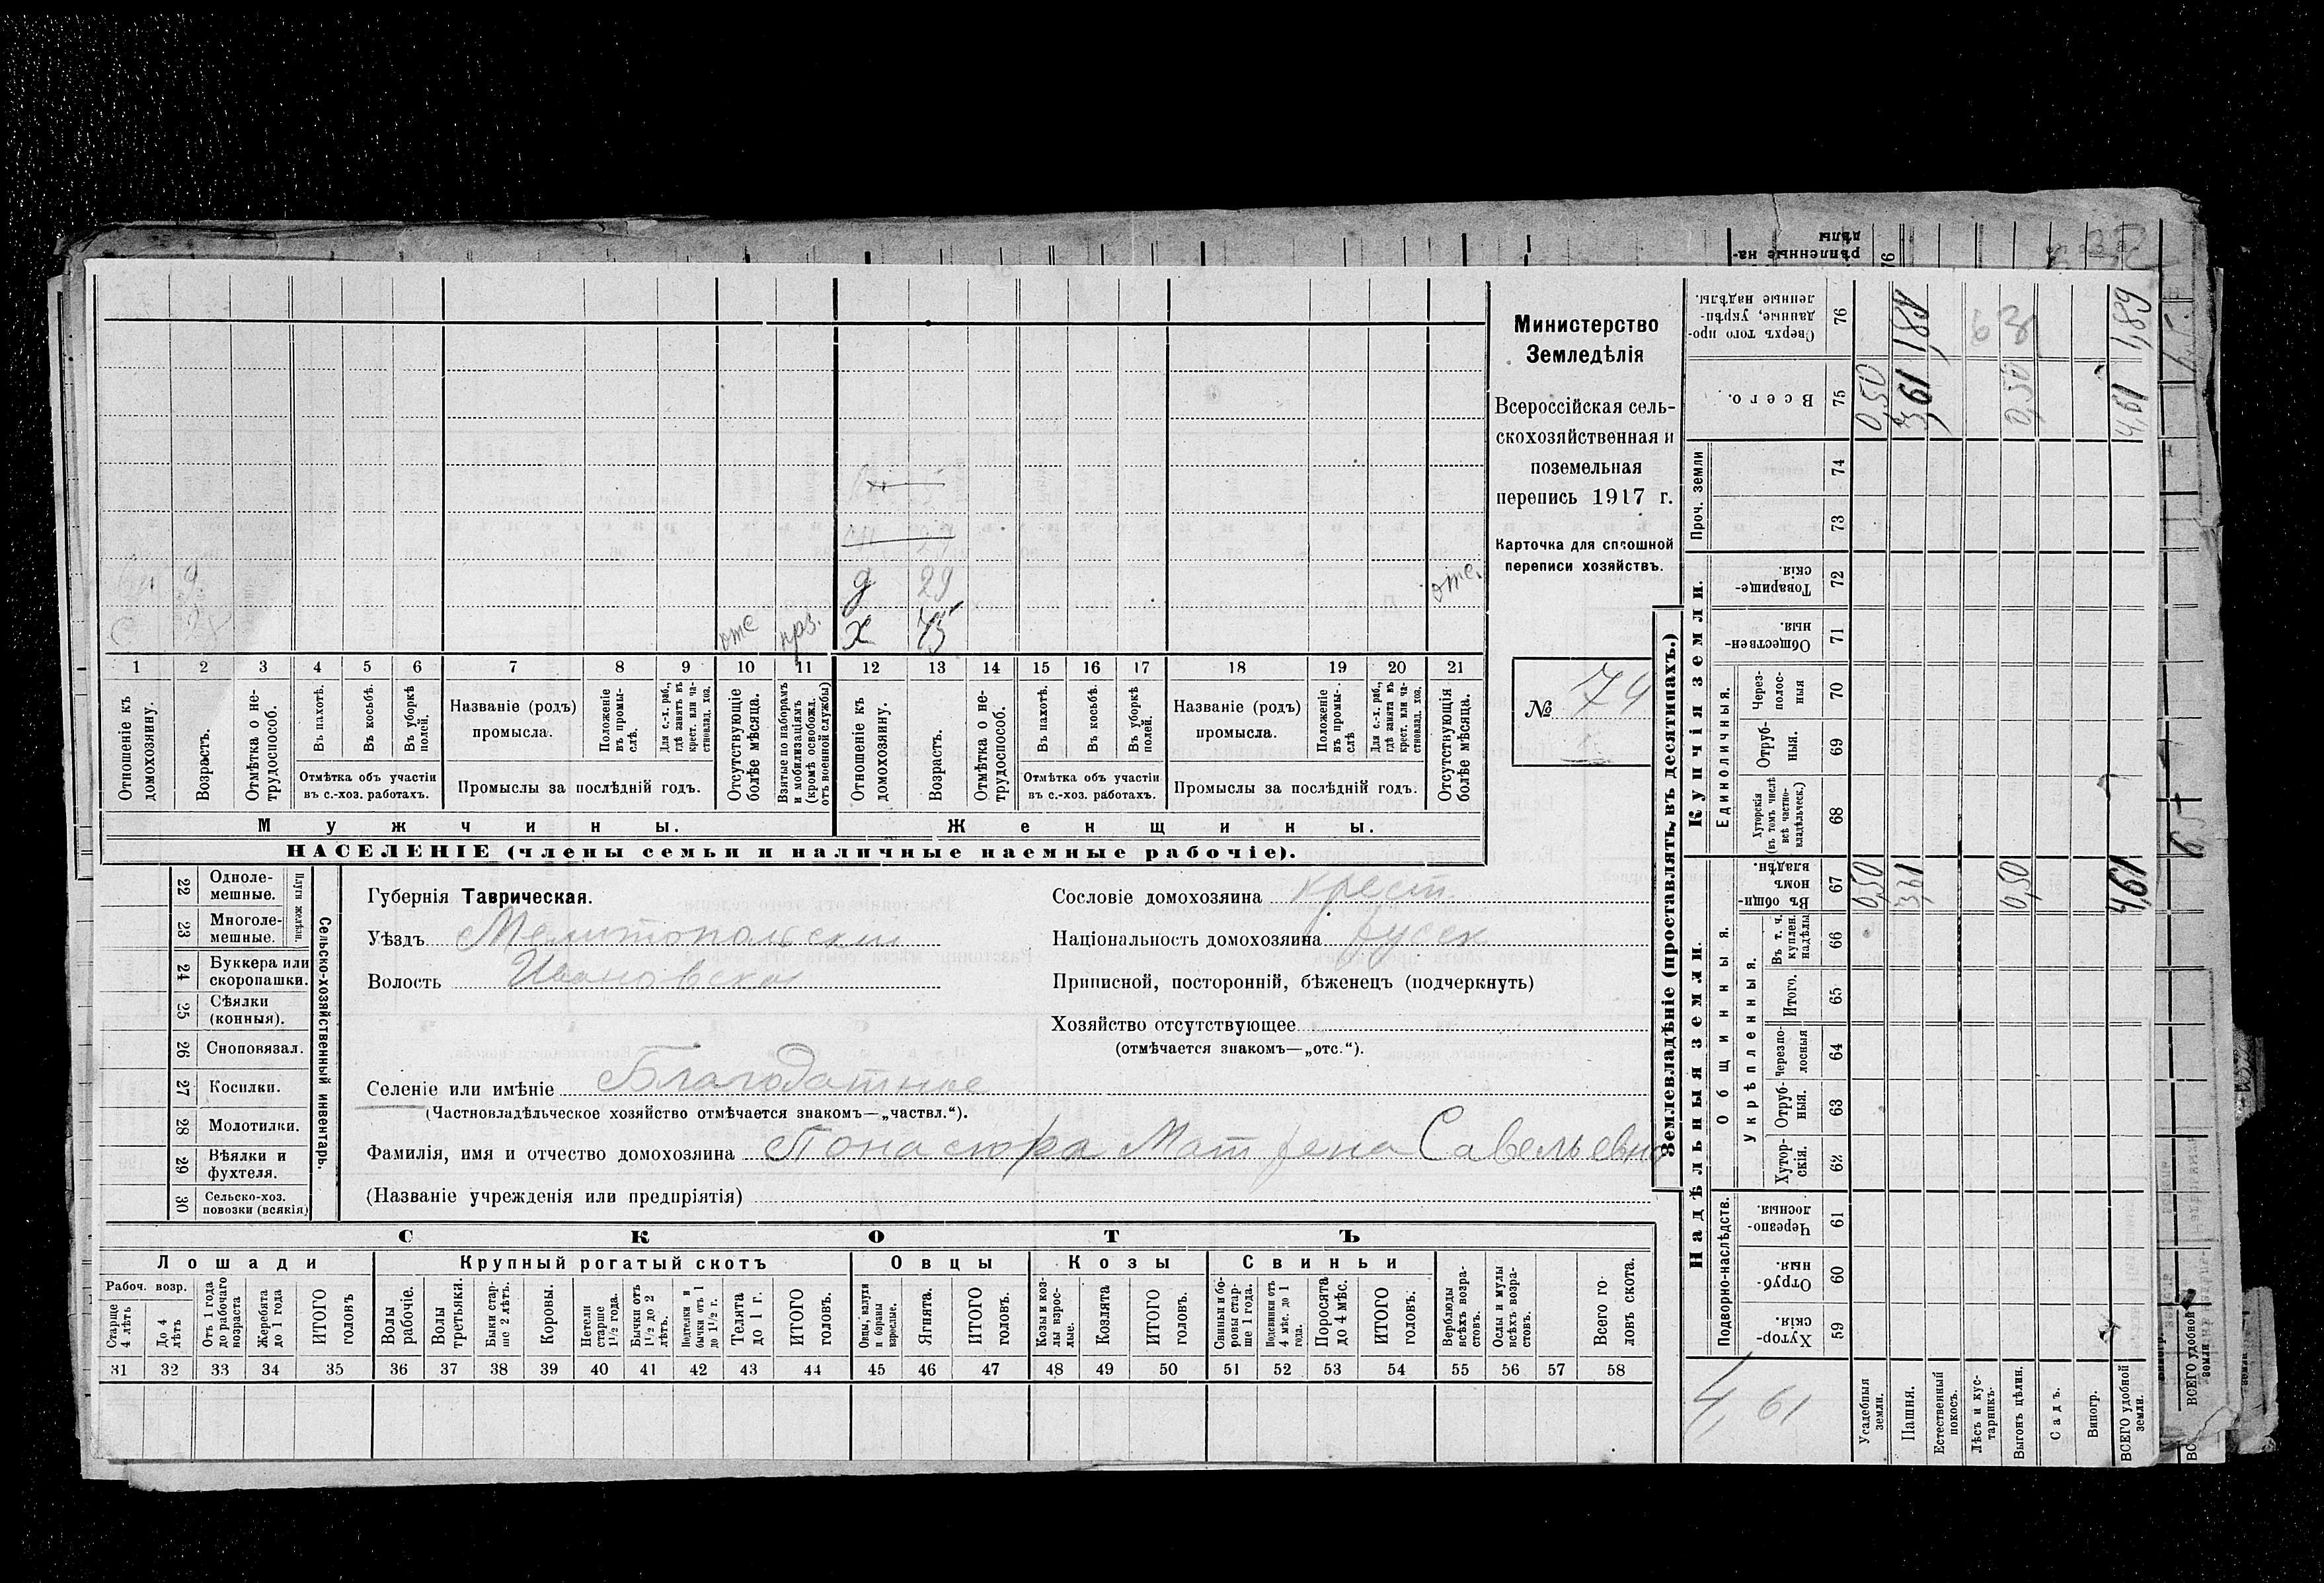 Министерство
Земледѣлія
Всероссійская сель-
скохозяйственная и
поземельная
перепись 1917 г.
Карточка для сплошной
переписи хозяйствъ.
№ 74
9
д 29 отс.
отс прз. х 75
1 2 3 4 5 6 7 8 9 10 11 12 13 14 15 16 17 18 19 20 21
Отношеніе къ домохозяину.
Возрастъ.
Отмѣтка о не-трудоспособ.
Въ пахотѣ.
Въ косьбѣ.
Въ уборкѣ полей.
Отмѣтка объ участіи
въ с.-хоз. работахъ.
Названіе (родъ)
промысла.
Положеніе въ промы-слѣ.
Для с.-х. раб., гдѣ занятъ въ крест. или ча-стновлад. хоз.
Промыслы за послѣдній годъ.
Отсутствующіе болѣе мѣсяца.
Взятые по наборамъ и мобилизаціямъ (кромѣ освобожд. отъ военной службы)
Отношеніе къ домохозяину.
Возрастъ.
Отмѣтка о не-трудоспособ.
Въ пахотѣ.
Въ косьбѣ.
Въ уборкѣ полей.
Отмѣтка объ участіи
въ с.-хоз. работахъ.
Названіе (родъ)
промысла.
Положеніе въ промы-слѣ
Для с.-х. раб., гдѣ занята въ крест. или ча-стновлад. хоз.
Промыслы за послѣдній годъ.
Отсутствующія болѣе мѣсяца.
Мужчины.
Женщины.
НАСЕЛЕНІЕ (члены семьи и наличные наемные рабочіе).
22 Одноле-мешные.
23 Многоле-мешные.
Плуги желѣзн.
24 Буккера или скоропашки.
25 Сѣялки (конныя).
26 Сноповязал.
27 Косилки.
28 Молотилки.
29 Вѣялки и фухтеля.
30 Сельско-хоз. повозки (всякія)
Сельско-хозяйственный инвентарь.
Губернія Таврическая.
Уѣздъ Мелитопольский
Волость Ивановская
Селеніе или имѣніе Благодатное
(Частновладѣльческое хозяйство отмѣчается знакомъ—„частвл.“).
Фамилія, имя и отчество домохозяина Понасюра Матрена Савельевна
(Названіе учрежденія или предпріятія)
Сословіе домохозяина крест.
Національность домохозяина русск
Приписной, посторонній, бѣженецъ (подчеркнуть)
Хозяйство отсутствующее
(отмѣчается знакомъ—„отс.“).
СКОТЪ
Лошади
Крупный рогатый скотъ
Овцы
Козы
Свиньи
Рабоч. возр.
Старше 4 лѣтъ
До 4 лѣтъ
Отъ 1 года до рабочаго возраста
Жеребята до 1 года
ИТОГО головъ
Волы рабочіе.
Волы третьяки.
Быки стар-ше 2 лѣтъ.
Коровы.
Нетели старше 1½ года.
Бычки отъ 1½ до 2 лѣтъ.
Подтелки и бычки отъ 1 до 1½ г.
Телята до 1 г.
ИТОГО головъ.
Овцы, валухи и бараны взрослые.
Ягнята.
ИТОГО головъ.
Козы и коз-лы взрос-лые.
Козлята
ИТОГО головъ.
Свиньи и бо-ровы стар-ше 1 года.
Подсвинки отъ 4 мѣс. до 1 года.
Поросята до 4 мѣс.
ИТОГО головъ.
Верблюды всѣхъ возра-стовъ.
Ослы и мулы всѣхъ возра-стовъ.
Всего го-ловъ скота.
31 32 33 34 35 36 37 38 39 40 41 42 43 44 45 46 47 48 49 50 51 52 53 54 55 56 57 58
Землевладѣніе (проставлять въ десятинахъ.)
Надѣльныя земли.
Купчія земли.
Проч. земли
Подворно-наслѣдств.
Общинныя.
Укрѣпленныя.
Единоличныя.
Хутор-скія. 59
Отруб-ныя. 60
Черезпо-лосныя. 61
Хутор-скія. 62
Отруб-ныя. 63
Черезпо-лосныя 64
Итого. 65
Въ т. ч. куплен. надѣлы 66
Въ общи-номъ владѣн. 67
Хуторскія (въ томъ числѣ всѣ частно-владѣльческ.) 68
Отруб-ныя. 69
Через-полос-ныя 70
Обществен-ныя. 71
Товарище-скія. 72
73
74
Всего. 75
Сверхъ того про-данные, укрѣп-ленные надѣлы. 76
Усадебныя земли. 0,50 0,50
Пашня. 3,61 3,61
Естественный покосъ.
Лѣсъ и кус-тарникъ.
Выгонъ цѣлин. 0,50 0,50
Садъ.
Виногр.
ВСЕГО удобной земли. 4,61 4,61 1,89
4,61